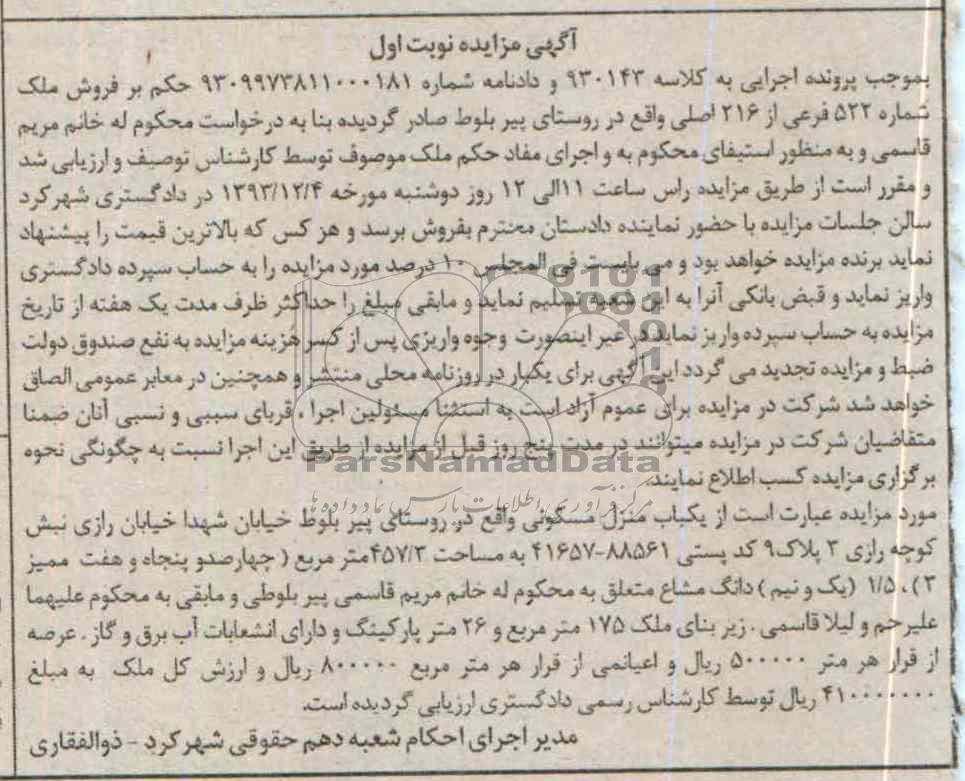 آگهی مزایده نوبت اول
بموجب پرونده اجرایی به کلاسه ۹۳۰۱۴۳ و دادنامه شماره ۹۳۰۹۹۷۳۸۱۱۰۰۰۱۸۱ حکم بر فروش ملک
شماره ۵۲۲ فرعی از ۲۱۶ اصلی واقع در روستای پیر بلوط صادر گردیده بنا به درخواست محکوم له خانم مریم
قاسمی و به منظور استیفای محکوم به و اجرای مفاد حکم ملک موصوف توسط کارشناس توصیف و ارزیابی شد
و مقرر است از طریق مزایده راس ساعت ۱۱الی ۱۲ روز دوشنبه مورخه ۱۳۹۳/۱۲/۴ در دادگستری شهرکرد
سالن جلسات مزایده با حضور نماینده دادستان محترم بفروش برسد و هر کس که بالاترین قیمت را پیشنهاد
نماید برنده مزایده خواهد بود و می بایست فی المجلس ۱۰ درصد مورد مزایده را به حساب سپرده دادگستری
واریز نماید و قبض بانکی آنرا به این شعبه تسلیم نماید و مابقی مبلغ را حداکثر ظرف مدت یک هفته از تاریخ
مزایده به حساب سپرده واریز نماید در غیر اینصورت وجوه واریزی پس از کسر هزینه مزایده به نفع صندوق دولت
ضبط و مزایده تجدید می گردد این آگهی برای یکبار در روزنامه محلی منتشر و همچنین در معابر عمومی الصاق
خواهد شد شرکت در مزایده برای عموم آزاد است به استثنا مسئولین اجرا ، قربای سببی و نسبی آنان ضمنا
متقاضیان شرکت در مزایده میتوانند در مدت پنج روز قبل از مزایده از طریق این اجرا نسبت به چگونگی نحوه
برگزاری مزایده کسب اطلاع نمایند.
ParsNamadData
مرکز فرآوری اطلاعات پارس نماد داده ها
مورد مزایده عبارت است از یکباب منزل مسکونی واقع در روستای پیر بلوط خیابان شهدا خیابان رازی نبش
کوچه رازی ۳ پلاک۹ کد پستی ۸۸۵۶۱-۴۱۶۵۷ به مساحت ۴۵۷/۳متر مربع ( چهارصدو پنجاه و هفت ممیز
۳) ، ۱/۵ (یک و نیم ) دانگ مشاع متعلق به محکوم له خانم مریم قاسمی پیر بلوطی و مابقی به محکوم علیهما
علیرحم و لیلا قاسمی . زیر بنای ملک ۱۷۵ متر مربع و ۲۶ متر پارکینگ و دارای انشعابات آب برق و گاز . عرصه
از قرار هر متر ۵۰۰۰۰۰ ریال و اعیانمی از قرار هر متر مربع ۸۰۰۰۰۰ ریال و ارزش کل ملک به مبلغ
۴۱۰۰۰۰۰۰۰ ریال توسط کارشناس رسمی دادگستری ارزیابی گردیده است.
مدیر اجرای احکام شعبه دهم حقوقی شهرکرد - ذوالفقاری